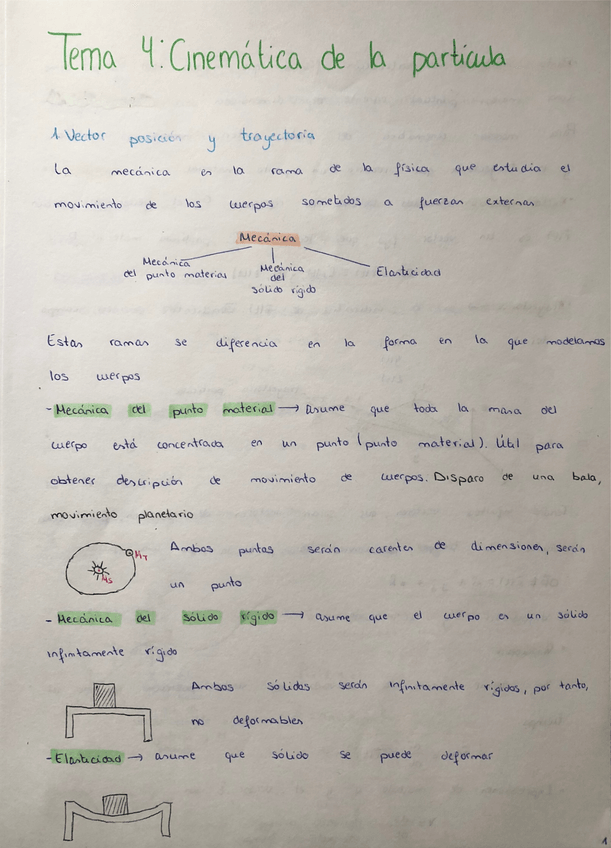 Tema 4: Cinemática de la partícula
1. Vector posición y trayectoria
La mecánica es la rama de la física que estudia el
movimiento de los cuerpos sometidos a fuerzas externas
Mecánica
Mecánica
del punto material
Mecánica
del
sólido rígido
Elasticidad
Estas ramas se diferencia en la forma en la que modelamos
los cuerpos
- Mecánica del punto material → asume que toda la masa del
cuerpo está concentrada en un punto (punto material). Útil para
obtener descripción de movimiento de cuerpos. Disparo de una bala,
movimiento planetario
MT
Ms
Ambos puntos serán carentes de dimensiones, serán
un punto
- Mecánica del sólido rígido → asume que el cuerpo es un sólido
infinitamente rígido
Ambos sólidos serán infinitamente rígidos, por tanto,
no deformables
- Elasticidad → asume que sólido se puede deformar
1